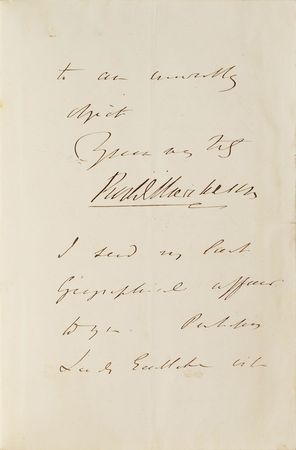 to an unworthy
object
Yours very truly
Rod. I. Murchison
I send my last
Geographical affair
to you. Perhaps
Lady Eastlake will